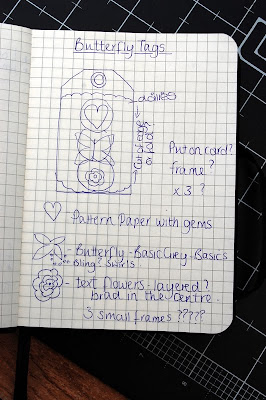 Butterfly Tags
doilies
Cut at edge
Put on card?
frame?
x 3 ?
Pattern Paper with gems
- Butterfly - Basic Grey - Basics
Bling? Swirls
- text flowers - layered?
brad in the centre.
3 small frames ????